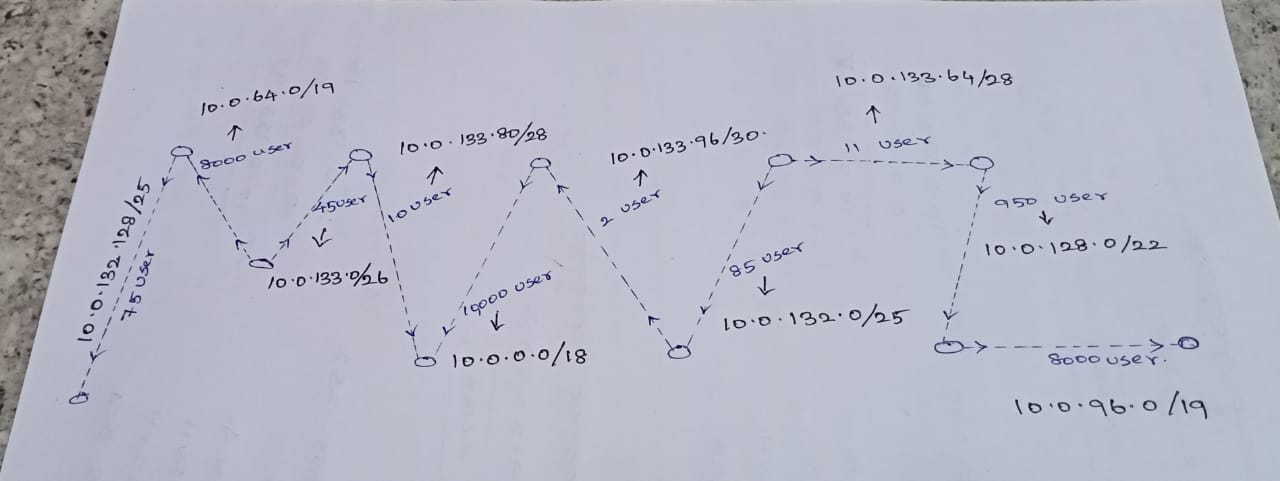 10.0.132.128/25
75 user
10.0.64.0/19
8000 user
45user
10.0.133.0/26
10.0.133.80/28
10 user
10000 user
10.0.0.0/18
10.0.133.96/30.
2 user
85 user
10.0.132.0/25
10.0.133.64/28
11 user
950 user
10.0.128.0/22
8000 user.
10.0.96.0/19